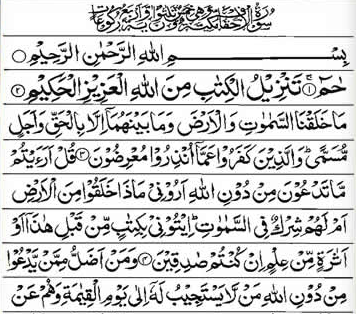 بِسْمِ اللهِ الرَّحْمٰنِ الرَّحِيْمِ
حٰمٓ ۚ﴿۱﴾ تَنْزِيْلُ الْكِتٰبِ مِنَ اللهِ الْعَزِيْزِ الْحَكِيْمِ ﴿۲﴾
مَا خَلَقْنَا السَّمٰوٰتِ وَالْاَرْضَ وَمَا بَيْنَهُمَاۤ اِلَّا بِالْحَقِّ وَاَجَلٍ
مُّسَمًّى ؕ وَالَّذِيْنَ كَفَرُوْا عَمَّاۤ اُنْذِرُوْا مُعْرِضُوْنَ ﴿۳﴾ قُلْ اَرَءَيْتُمْ
مَّا تَدْعُوْنَ مِنْ دُوْنِ اللهِ اَرُوْنِيْ مَاذَا خَلَقُوْا مِنَ الْاَرْضِ
اَمْ لَهُمْ شِرْكٌ فِي السَّمٰوٰتِ ؕ اِيْتُوْنِيْ بِكِتٰبٍ مِّنْ قَبْلِ هٰذَاۤ اَوْ
اَثٰرَةٍ مِّنْ عِلْمٍ اِنْ كُنْتُمْ صٰدِقِيْنَ ﴿۴﴾ وَمَنْ اَضَلُّ مِمَّنْ يَّدْعُوْا
مِنْ دُوْنِ اللهِ مَنْ لَّا يَسْتَجِيْبُ لَهٗۤ اِلٰى يَوْمِ الْقِيٰمَةِ وَهُمْ عَنْ